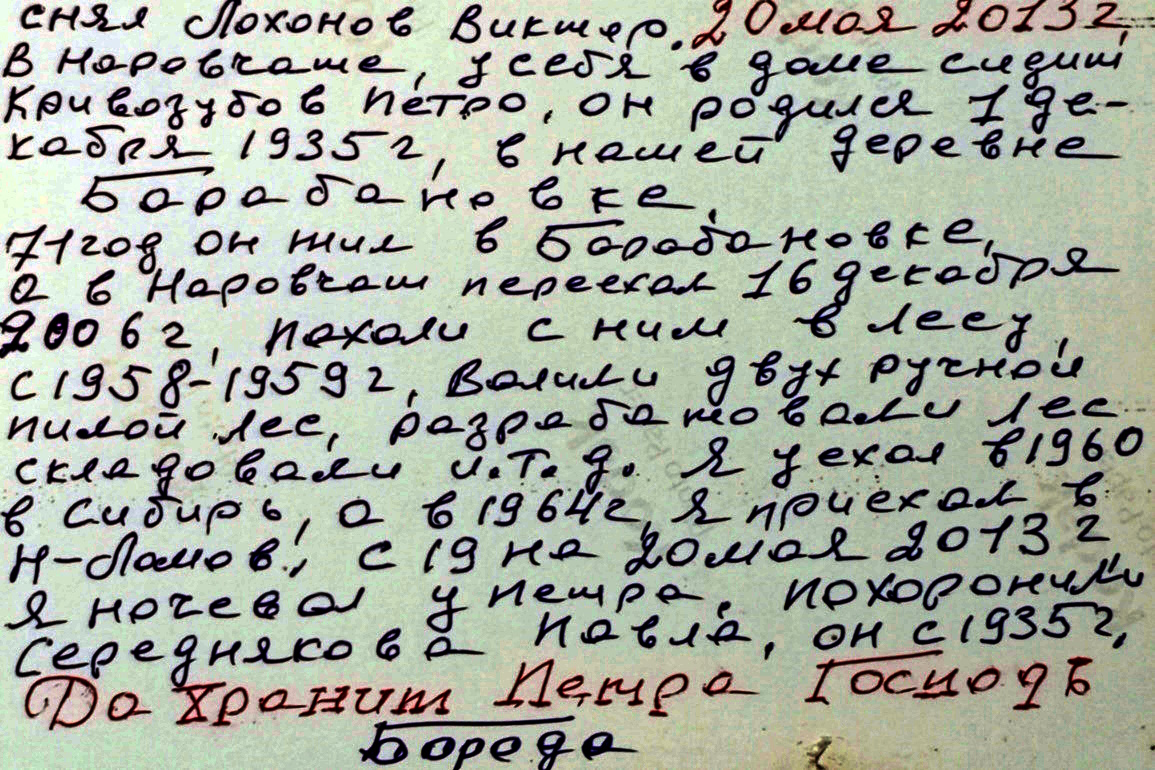 снял Лохонов Виктор. 20 мая 2013 г,
в Наровчате, у себя в доме сидит
Кривозубов Петро, он родился 1 де-
кабря 1935 г, в нашей деревне
Барабановке.
71 год он жил в Барабановке,
а в Наровчат переехал 16 декабря
2006 г, пахали с ним в лесу,
с 1958-1959 г, Валили двух ручной
пилой лес, разрабатовали лес
складовали и.т.д. Я уехал в 1960
в Сибирь, а в 1964 г, я приехал в
Н-Ломов, с 19 на 20 мая 2013 г
я ночевал у Петра, похоронили
Середнякова Павла, он с 1935 г,
Да хранит Петра Господь
Борода